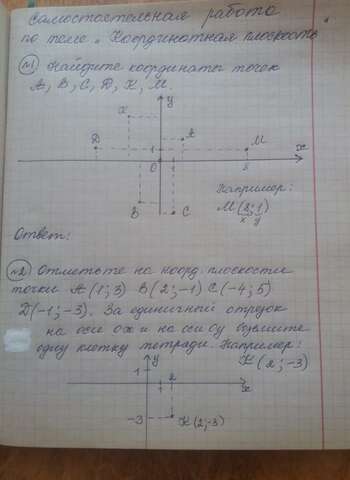 Самостоятельная работа
по теме „Координатная плоскость"
№1. Найдите координаты точек
A, B, C, D, X, M.
y
X
A
D
1
M
x
O
1
8
B
C
Например:
M(8;1)
x y
Ответ:
№2 Отметьте на коорд. плоскости
точки A(1;3) B(2;-1) C(-4;5)
D(-1;-3). За единичный отрезок
на оси ox и на оси oy возьмите
одну клетку тетради. Например:
K(2;-3)
y
1
2
x
1
-3
K(2;-3)